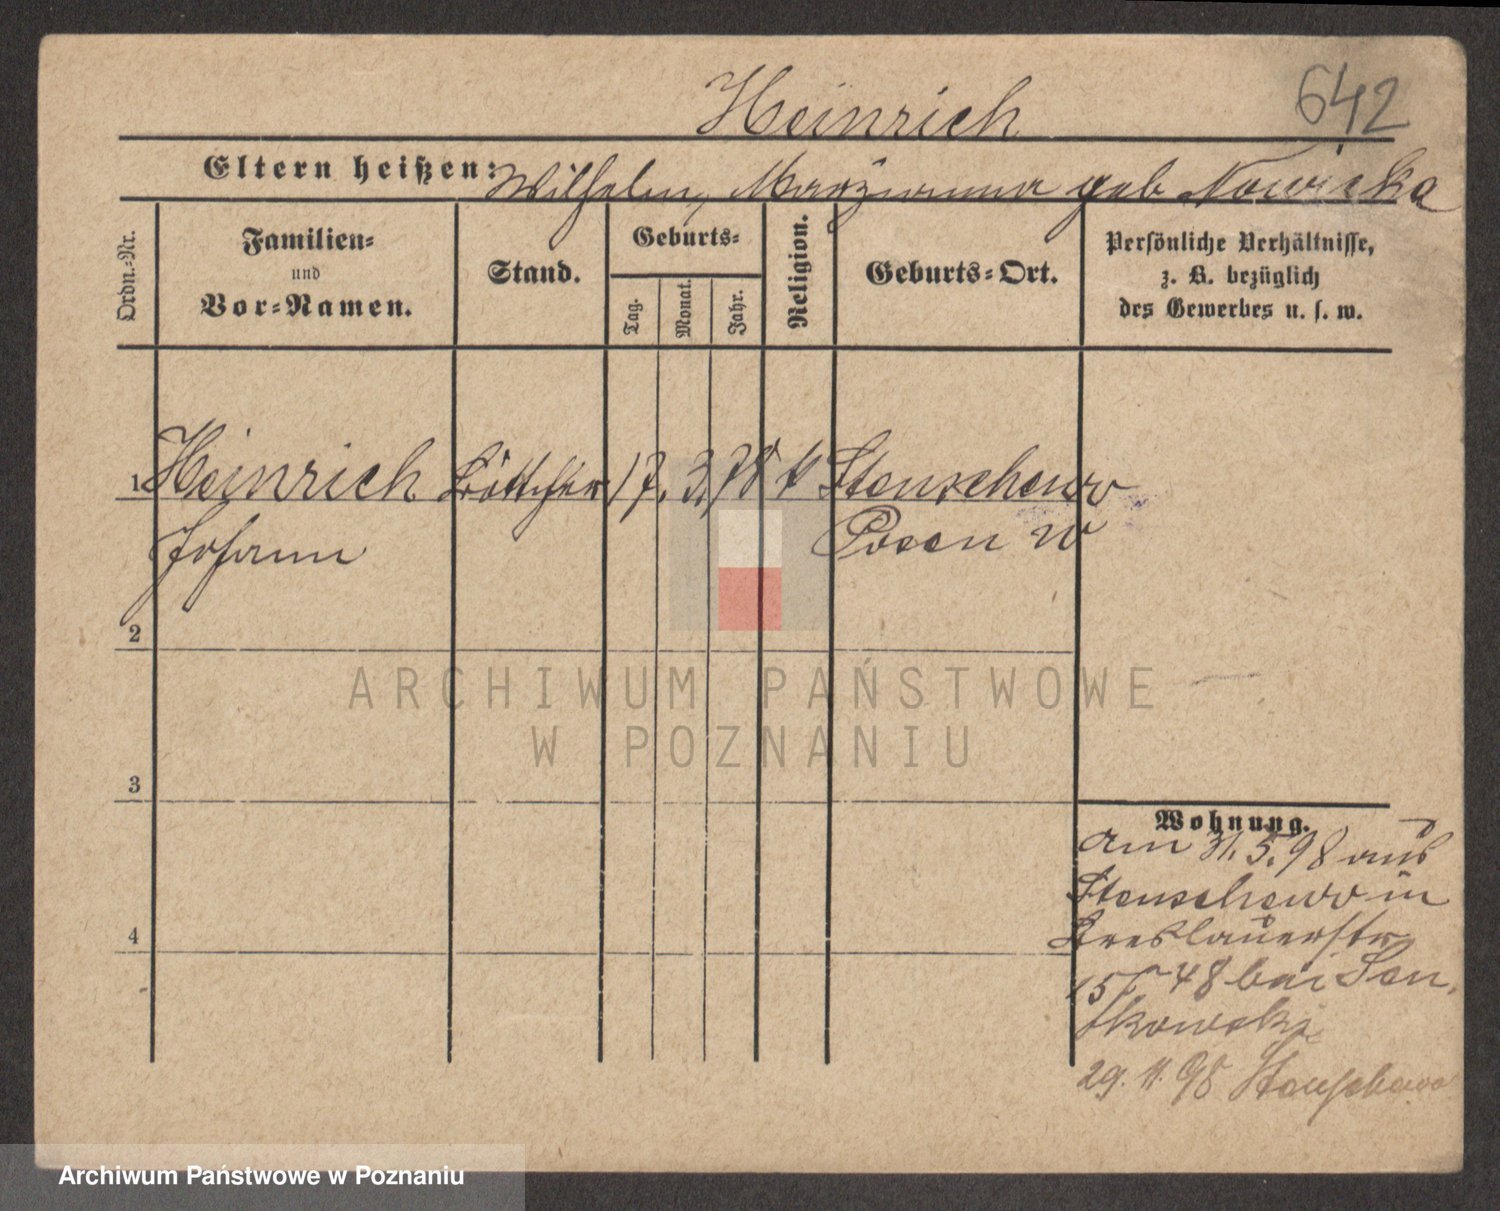 642
Heinrich
Eltern heißen: Wilhelm, Marzianna geb Nowicka
Ordn.-Nr.
Familien-
und
Vor-Namen.
Stand.
Geburts-
Tag.
Monat.
Jahr.
Religion.
Geburts-Ort.
Persönliche Verhältnisse,
z. B. bezüglich
des Gewerbes u. s. w.
1 Heinrich Böttcher 17. 3. 78 k Stenschewo
Johann Posen W
2
3
4
Wohnung.
am 31. 5. 98 aus
Stenschewo in
Breslauerstr
15 48 bei
29. 11. 98 Stenschewo
ARCHIWUM PAŃSTWOWE
W POZNANIU
Archiwum Państwowe w Poznaniu